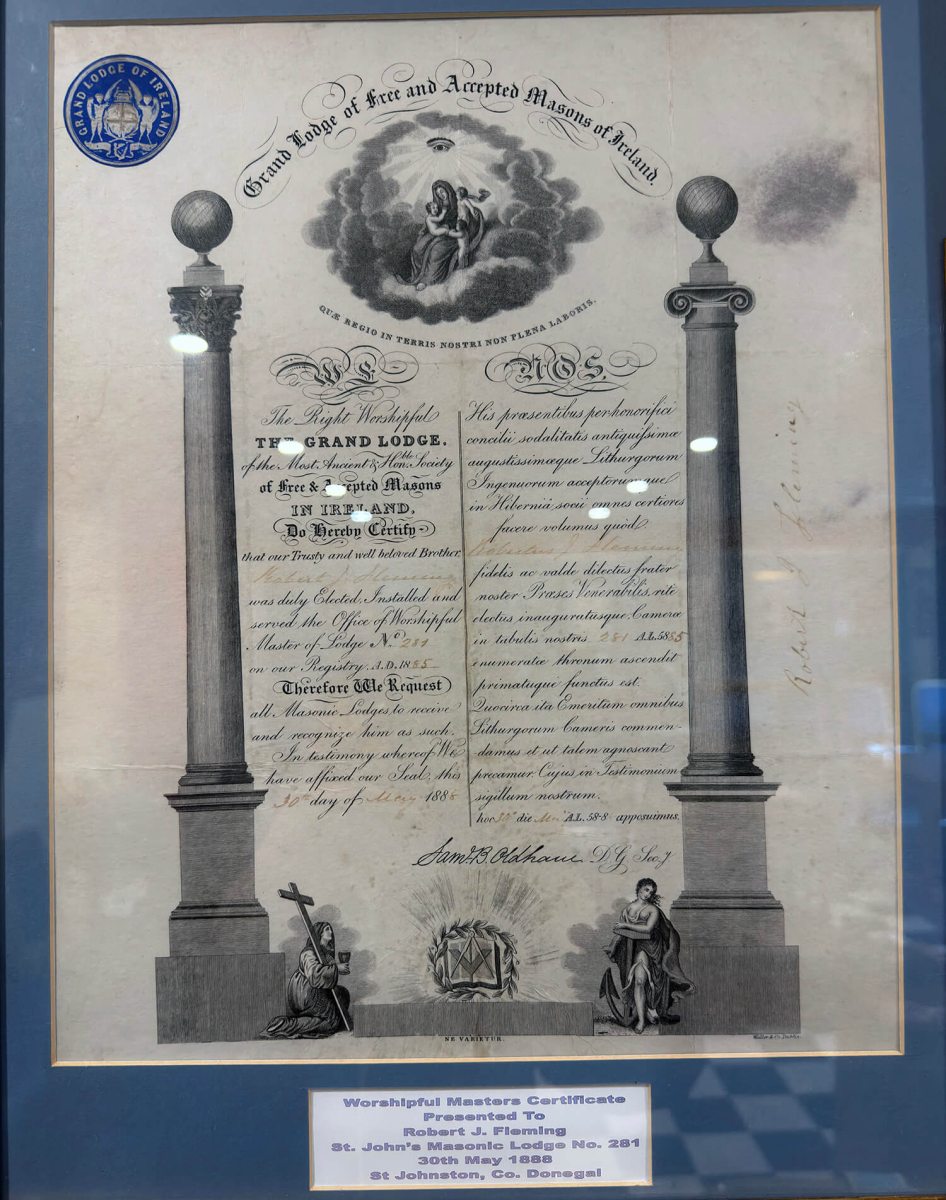 GRAND LODGE OF IRELAND
Grand Lodge of Free and Accepted Masons of Ireland.
QUÆ REGIO IN TERRIS NOSTRI NON PLENA LABORIS.
WE
The Right Worshipful
THE GRAND LODGE,
of the Most Ancient & Honble. Society
of Free & Accepted Masons
IN IRELAND,
Do Hereby Certify
that our Trusty and well beloved Brother
Robert J. Fleming
was duly Elected, Installed and
served the Office of Worshipful
Master of Lodge No. 281
on our Registry, A.D. 1885
Therefore We Request
all Masonic Lodges, to receive
and recognize him as such.
In testimony whereof We
have affixed our Seal, this
30th day of May 1888
NOS.
His præsentibus perhonorifici
concilii sodalitatis antiquissimæ
augustissimæque Lithurgorum
Ingenuorum acceptorumque
in Hiberniâ, socii omnes certiores
facere volumus quòd
Robertus J. Fleming
fidelis ac valde dilectus frater
noster Præses Venerabilis, ritè
electus, inauguratusque, Cameræ
in tabulis nostris 281 A.L. 5885
enumeratæ thronum ascendit
primatuque functus est.
Quocirca ita Emeritum omnibus
Lithurgorum Cameris commen-
damus et ut talem agnoscant
precamur. Cujus in Testimonium
sigillum nostrum.
hoc 30º die A.L. 58-8 apposuimus.
Saml. B. Oldham D. G. Secy
Robert J Fleming
NE VARIETUR.
Waller & Co. Dublin.
Worshipful Masters Certificate
Presented To
Robert J. Fleming
St. John's Masonic Lodge No. 281
30th May 1888
St Johnston, Co. Donegal